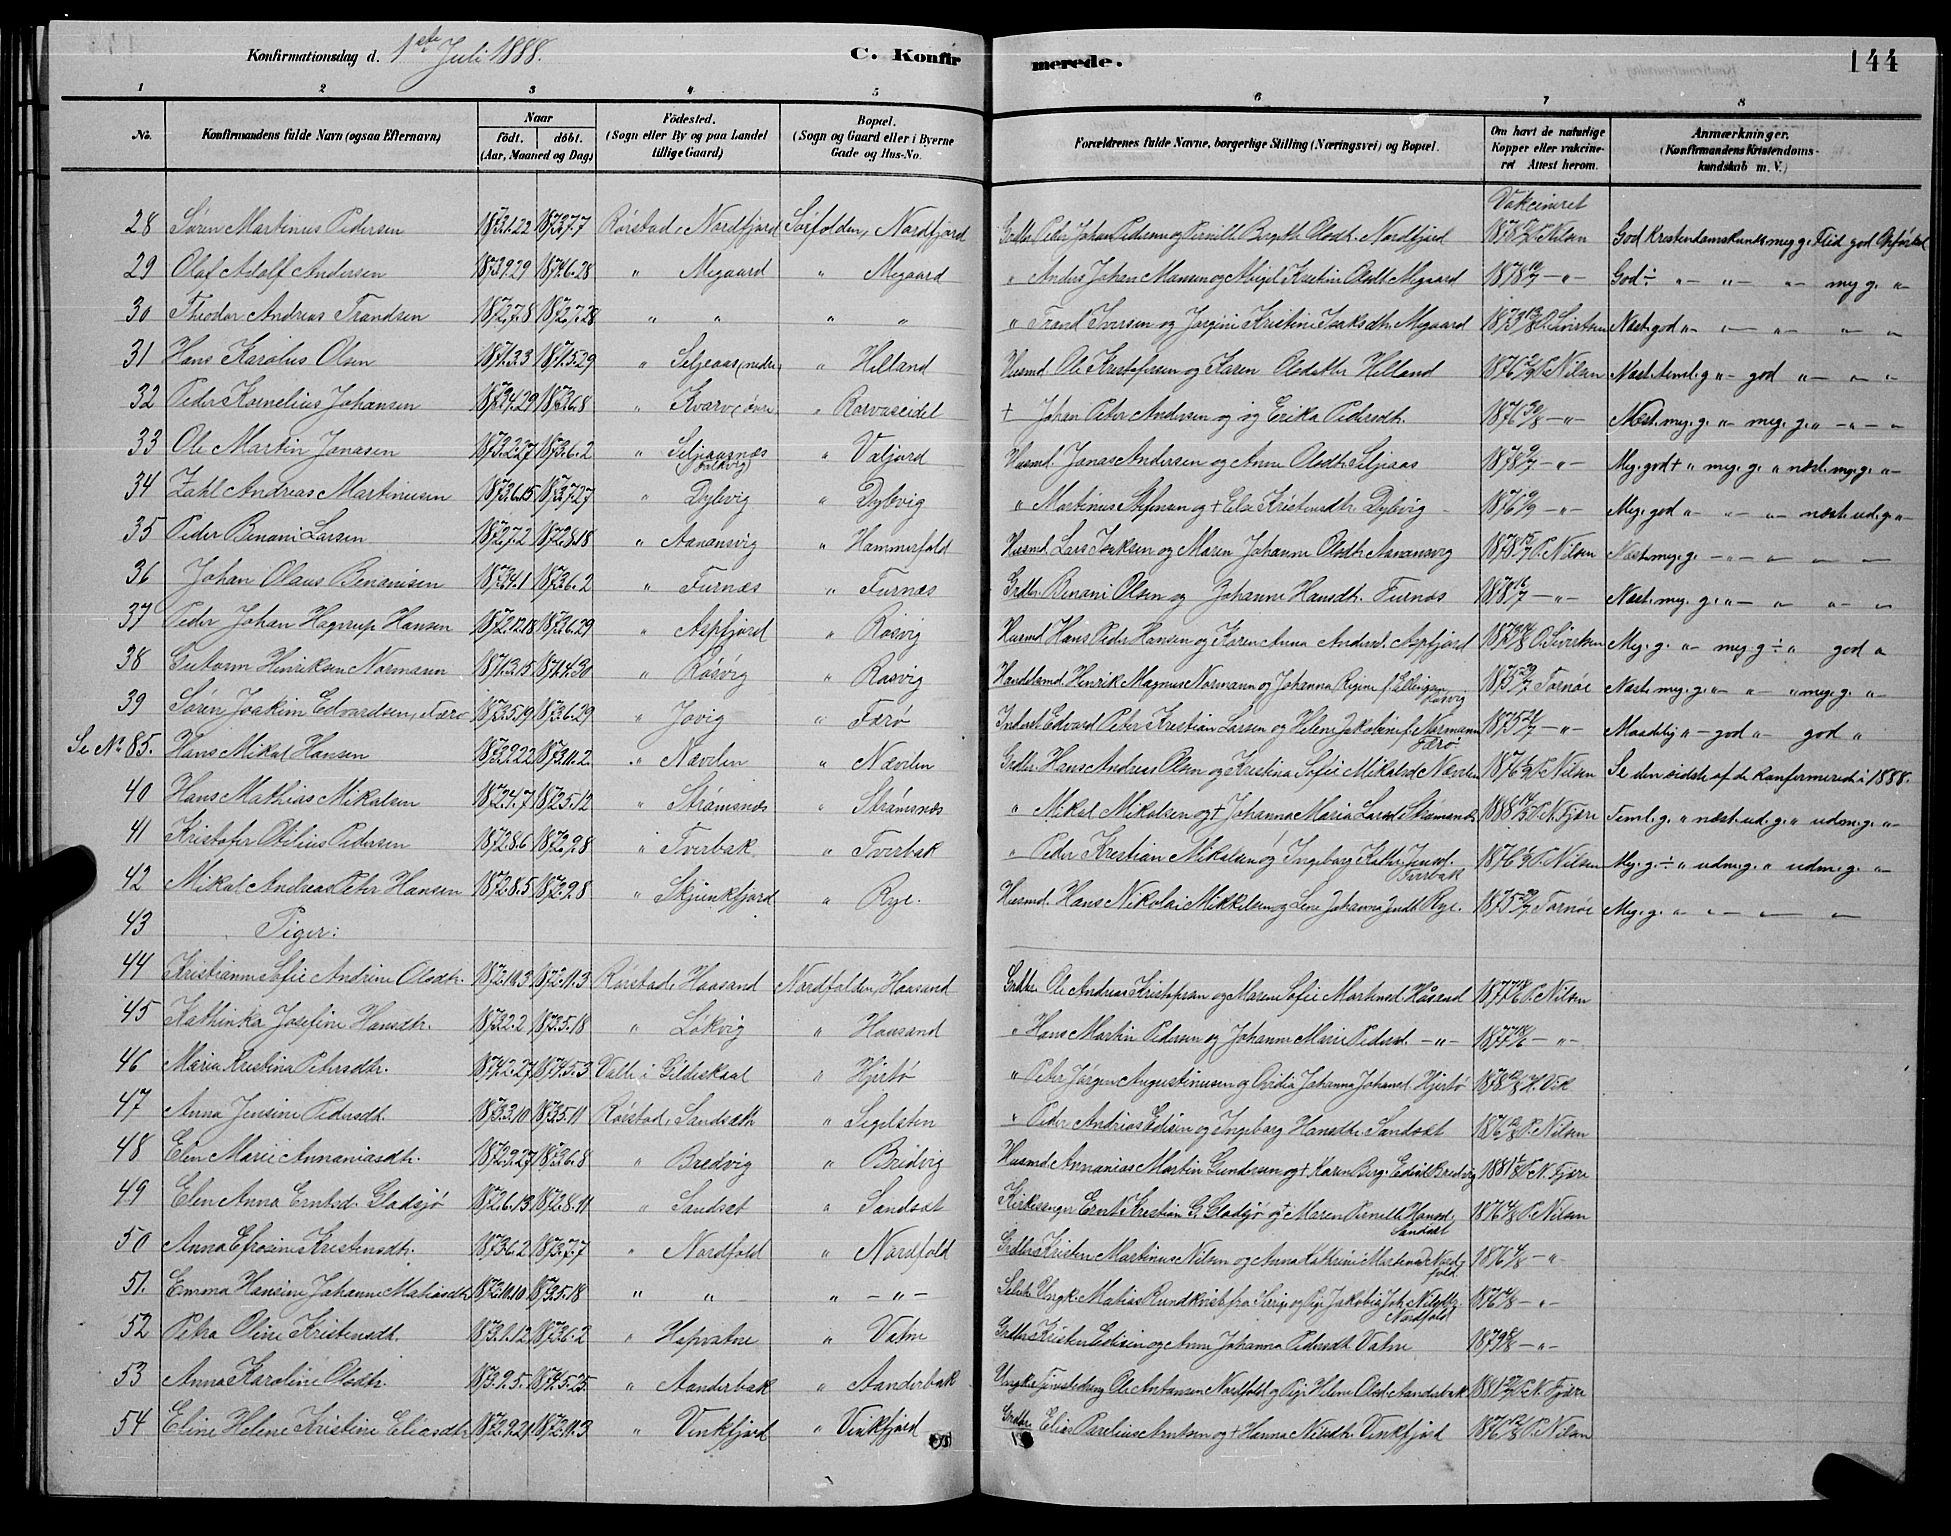 Konfirmationsdag d. 1ste Juli 1888.
C. Konfirmerede.
144
1 2 3 4 5 6 7 8
No. Konfirmandens fulde Navn (ogsaa Efternavn) Naar født. døbt. (Aar, Maaned og Dag) Fødested. (Sogn eller By og paa Landet tillige Gaard) Bopæl. (Sogn og Gaard eller i Byerne Gade og Hus-No. Forældrenes fulde Navne, borgerlige Stilling (Næringsvei) og Bopæl. Om havt de naturlige Kopper eller vakcineret Attest herom. Anmærkninger. (Konfirmandens Kristendomskundskab m. V.)
Vakcineret
28 Søren Martinus Pedersen 1873.1.22 1873.7.7 Rørstad, Nordfjord Sørfolden, Nordfjord Grdbr. Peder Johan Pedersen og Pernille Olsdtr. Nordfjord P. Nilsen God Kristendomskundsk. meg. g. Flid god Opførsel
29 Olaf Adolf Andersen 1873.9.29 1874.6.28 " Megaard " Megaard " Anders Johan Monsen og Abigel Kristine Olsdtr. Megaard God ÷ " " " meg. g. "
30 Theodor Andreas Trandsen 1872.7.8 1872.7.28 " " " " " Trand Iversen og Jørgine Kristine Isaksdtr. Megaard O. Sivertsen Næst. god " " " " "
31 Hans Karolius Olsen 1871.3.3 1871.5.29 " Seljeaas (nedre) " Helland Husmd. Ole Kristofersen og Karen Olsdatter Helland P. Nilsen Næst. teml. g. " god " " "
32 Peder Kornelius Johansen 1872.4.29 1873.6.8 " Kvarv, øvre " Rorvaseidet + Johan Peter Andersen og Erika Pedersdtr. Næst. meg. g. " meg. g. " " "
33 Ole Martin Jonasen 1873.2.27 1873.6.2 " Seljeaasnæs " Valjord Husmd. Jonas Andersen og Anne Olsdtr. Seljeaas Meg. god + " meg. g. " næst. meg. g. "
34 Zahl Andreas Martinusen 1873.6.15 1873.7.27 " Dybvig " Dybvig " Martinus Stefensen og + Elen Kristensdtr. Dybvig Meg. god " " " næst. ud. g. "
35 Peder Benani Larsen 1872.7.2 1872.8.18 " Aanansvig " Hammerfald Husmd. Lars Isaksen og Maren Johanne Olsdtr. Aanansvig P. Nilsen Næst. meg. g. " " " "
36 Johan Olaus Benanisen 1873.4.1 1873.6.2 " Furnæs " Furnæs Grdbr. Benani Olsen og Johanne Hansdtr. Furnæs Næst. meg. g. " " " "
37 Peder Johan Hagerup Hansen 1872.12.18 1873.6.29 " Aspfjord " Røsvig Husmd. Hans Peder Hansen og Karen Anna Andersd. Aspfjord O. Sivertsen Meg. g. " meg. g ÷ " god "
38 Gutorm Henriksen Normann 1871.3.15 1871.4.30 " Røsvig " Røsvig Handelsmd. Henrik Magnus Normann og Johanna Regine f. Ellingsen Røsvig Tornøe Næst. meg. g. " " " meg. g. "
39 Søren Joakim Edvardsen, Færø 1873.5.19 1873.6.29 " Jøvig " Færø Inderst Edvard Peter Kristian Larsen og Helene Jakobine f. Normann Færø Maadelig " god " god "
Se No 85. Hans Mikal Hansen 1873.9.22 1873.11.2. " Nævelen " Nævelen Grdbr. Hans Andreas Olsen og Kristina Sofie Mikalsd. Nævelen P. Nilsen Se den sidste af de konfermerede i 1888.
40 Hans Mathias Mikalsen 1872.4.7 1872.5.12 " Strømsnæs " Strømsnæs " Mikal Mikalsen og + Johanna Maria Larsd. Strømsnæs P. N. Fjære Teml. g. " næst. ud. g. " udm. g. "
41 Kristofer Otelius Pedersen 1872.8.6 1872.9.8 " Tverbak " Tverbak " Peder Krestian Mikalsen og Ingeborg Kathr. Jensd. Tverbak P. Nilsen Meg. g. ÷ " udm. g. " udm. g. "
42 Mikal Andreas Peter Hansen 1872.8.5 1872.9.8 " Skjunkfjord " Rye. Husmd. Hans Nikolai Mikkelsen og Lene Johanna Rye. Tornøe Meg. g. " " " "
43 Piger:
44 Kristianne Sofie Andrine Olsdtr. 1872.10.3 1872.11.3 Rørstad, Haasand Nordfolden, Haasand Grdbr. Ole Andreas Kristofersen og Maren Sofie Martinsd. Haasand P. Nilsen
45 Kathinka Josefine Hansdtr. 1873.2.2 1873.5.18 " Løkvig " Haasand " Hans Martin Pedersen og Johanne Marie Pedersd. "
46 Maria Kristina Petersdtr. 1874.2.27 1874.5.3 Valle i Gildeskaal " Hjertø " Peter Jørgen Augustinusen og Ovidia Johanna Johansd. Hjertø H. Vik
47 Anna Jensine Pedersdtr. 1873.3.10 1873.5.11 Rørstad, Sandsæth " Segelsten " Peder Andreas Edisen og Ingeborg Hansdtr. Sandset P. Nilsen
48 Elen Marie Annaniasdtr. 1872.9.27 1873.6.8 " Bredvig " Bredvig Husmd. Annanias Martin Gundersen og + Karen Berg. Bredvig P. N. Fjære
49 Elen Anna Erntsd. Gladsjø 1872.6.13 1872.8.11 " Sandset " Sandset Kirkesanger Ernt Kristian G. Gladsjø og Maren Pernille Hansd. Sandset P. Nilsen
50 Anna Efrosine Kristensdtr. 1873.6.2 1873.7.7 " Nordfold " Nordfold Grdbr. Kristen Martinus Nilsen og Anna Kathrine Martinsd. Nordfold
51. Emma Hansine Johanne Matiasdtr. 1872.10.10 1873.5.18 " " " " Ungk. Matias Rundkvist fra Sverige og Pige Jakobia Joh. Nilsdtr. Nordfold
52 Petra Oline Kristensdt. 1873.1.12 1873.6.2 " Hopvatne " Vatne Grdbr. Kristen Edisen og Anne Johanna Pedersdtr. Vatne
53 Anna Karoline Olsdtr. 1873.9.5. 1874.5.25. " Aanderbak " Aanderbak Ungk. Tjenestedreng Ole Antonsen Nordfold og Pige Helene Olsd. Aanderbak P. N. Fjære
54 Eline Helene Kristine Eliasdtr. 1872.9.21 1872.11.3 " Vinkfjord " Vinkfjord Grdbr. Elias Parelius Arntsen og + Hanna Nilsdtr. Vinkfjord P. Nilsen